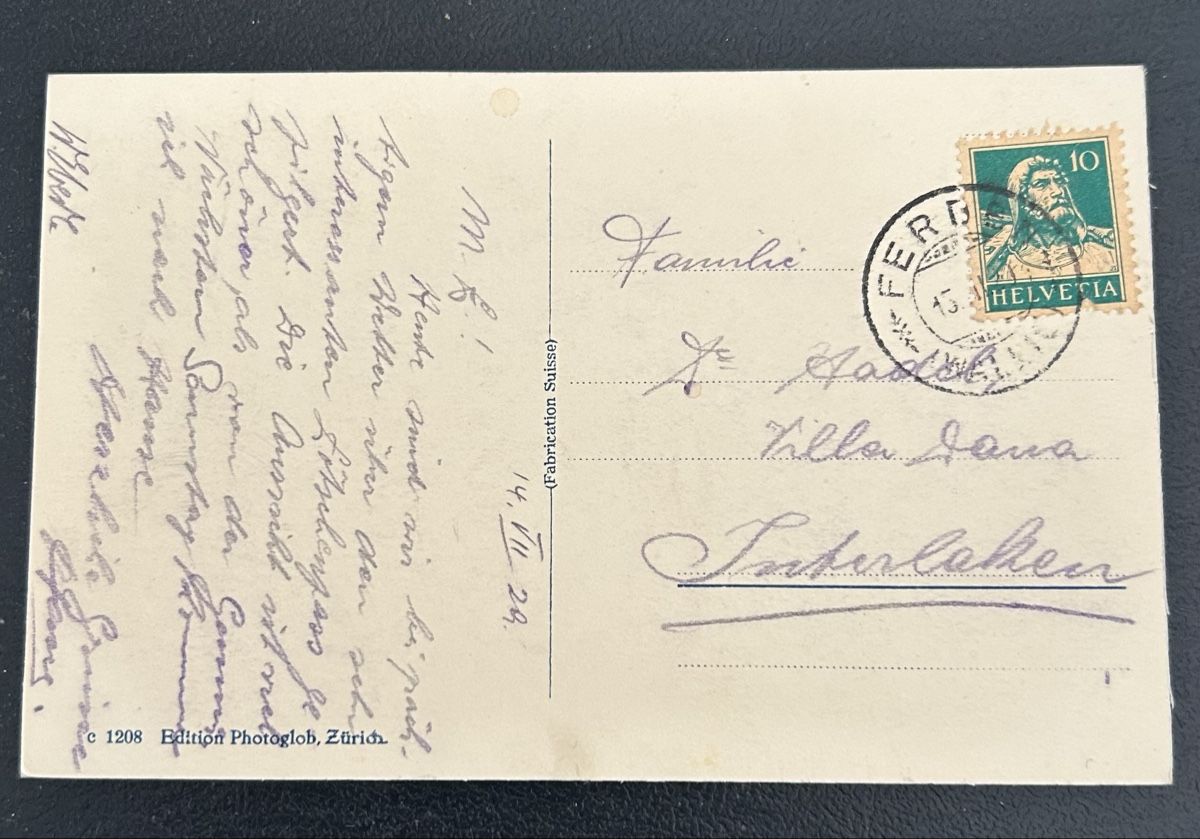 M. L!
Heute sind wir bei präch-
tigem Wetter über den sehr
interessanten Lötschenpass ge
pilgert. Die Aussicht ist viel
schöner, als von der Gemmi
Nächsten Samstag kommen
wir nach Hause
Herzliche Grüsse
14. VII 29.
(Fabrication Suisse)
c 1208 Edition Photoglob, Zürich.
10
HELVETIA
FERD
15
Familie
Dr
Villa Dana
Interlaken